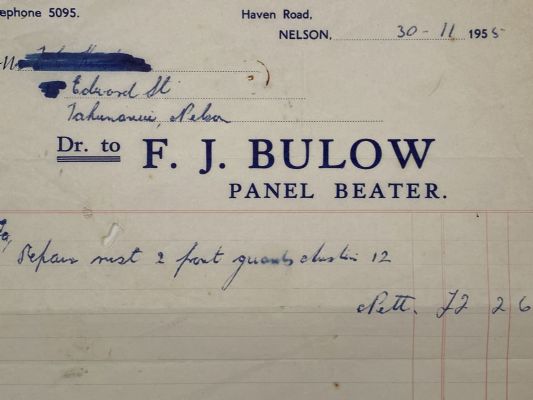 ephone 5095.
Haven Road,
NELSON, 30-11 1955
Edward St
Tahunanui, Nelson
Dr. to F. J. BULOW
PANEL BEATER.
To,
Repair rust 2 front guards Austin 12
Nett. 2 6